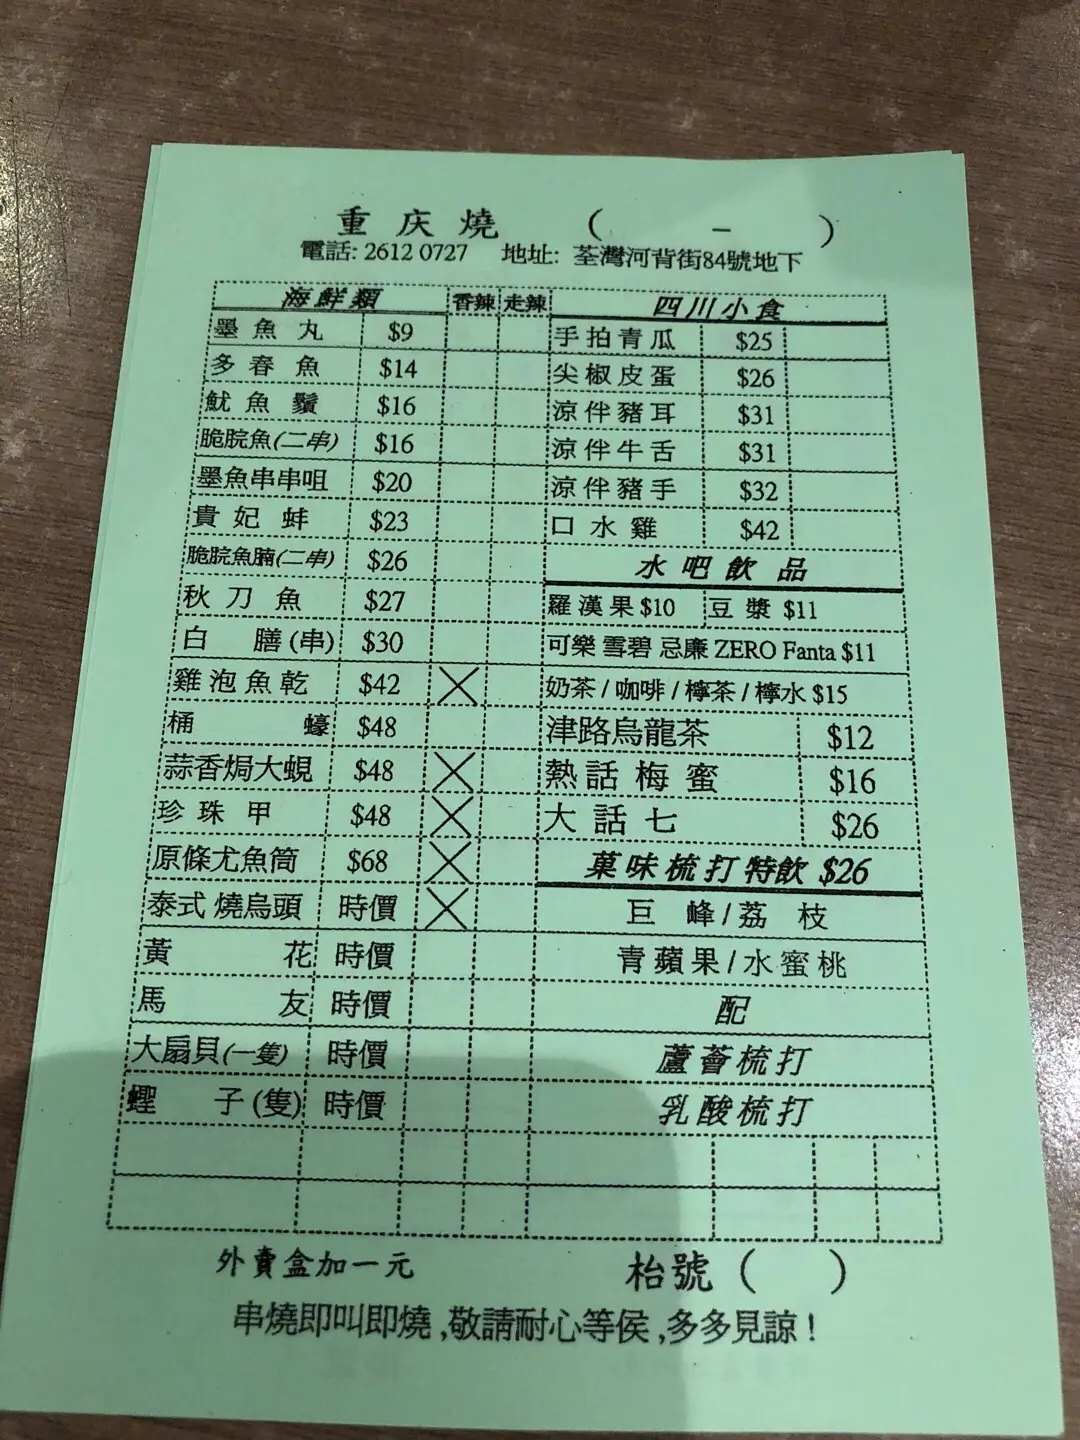 重庆燒 ( - )
電話: 2612 0727 地址: 荃灣河背街84號地下
海鮮類 香辣 走辣 四川小食
墨魚丸 $9 手拍青瓜 $25
多春魚 $14 尖椒皮蛋 $26
魷魚鬚 $16 涼伴豬耳 $31
脆脘魚(二串) $16 涼伴牛舌 $31
墨魚串串咀 $20 涼伴豬手 $32
貴妃蚌 $23 口水雞 $42
脆脘魚腩(二串) $26 水吧飲品
秋刀魚 $27 羅漢果 $10 豆漿 $11
白膳(串) $30 可樂 雪碧 忌廉 ZERO Fanta $11
雞泡魚乾 $42 奶茶/咖啡/檸茶/檸水 $15
桶蠔 $48 津路烏龍茶 $12
蒜香焗大蜆 $48 熱話梅蜜 $16
珍珠甲 $48 大話七 $26
原條尤魚筒 $68 菓味梳打特飲 $26
泰式燒烏頭 時價 巨峰/荔枝
黃花 時價 青蘋果/水蜜桃
馬友 時價 配
大扇貝(一隻) 時價 蘆薈梳打
蟶子(隻) 時價 乳酸梳打
外賣盒加一元 枱號 ( )
串燒即叫即燒,敬請耐心等侯,多多見諒!